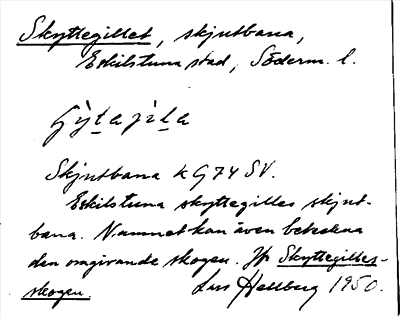 Skyttegillet, skjutbana,
Eskilstuna stad, Söderm. l.
Skjutbana k G74 SV.
Eskilstuna skyttegilles skjut-
bana. Namnet kan även beteckna
den omgivande skogen. Jfr Skyttegilles-
skogen.
Lars Hellberg 1950.